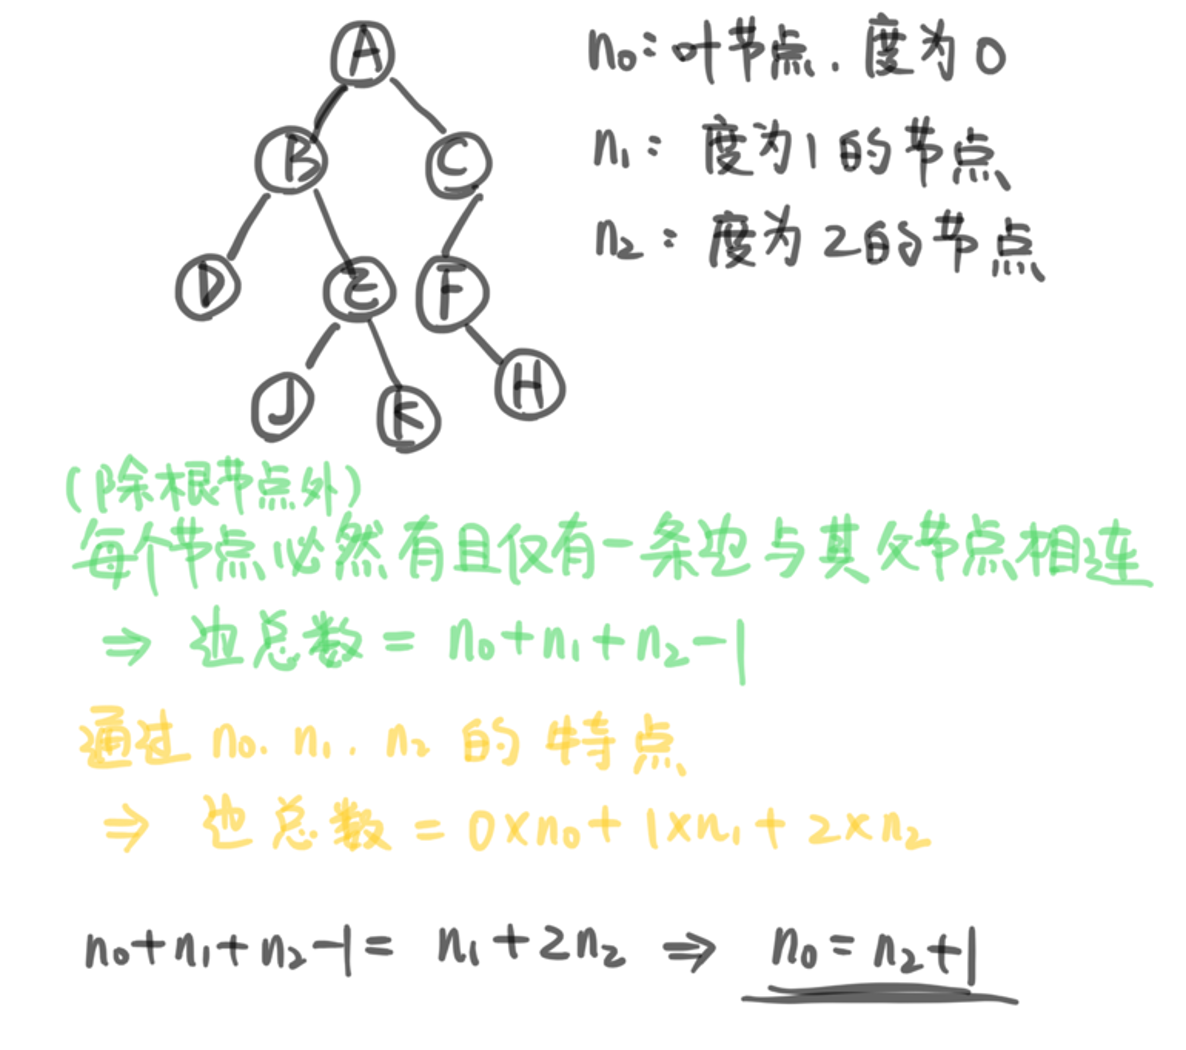 A
B
C
D
E
F
J
K
H
n₀：叶节点．度为0
n₁：度为1的节点
n₂：度为2的节点
（除根节点外）
每个节点必然有且仅有一条边与其父节点相连
⇒ 边总数 = n₀+n₁+n₂-1
通过 n₀．n₁．n₂ 的 特点
⇒ 边总数 = 0×n₀+1×n₁+2×n₂
n₀+n₁+n₂-1= n₁+2n₂ ⇒ n₀=n₂+1